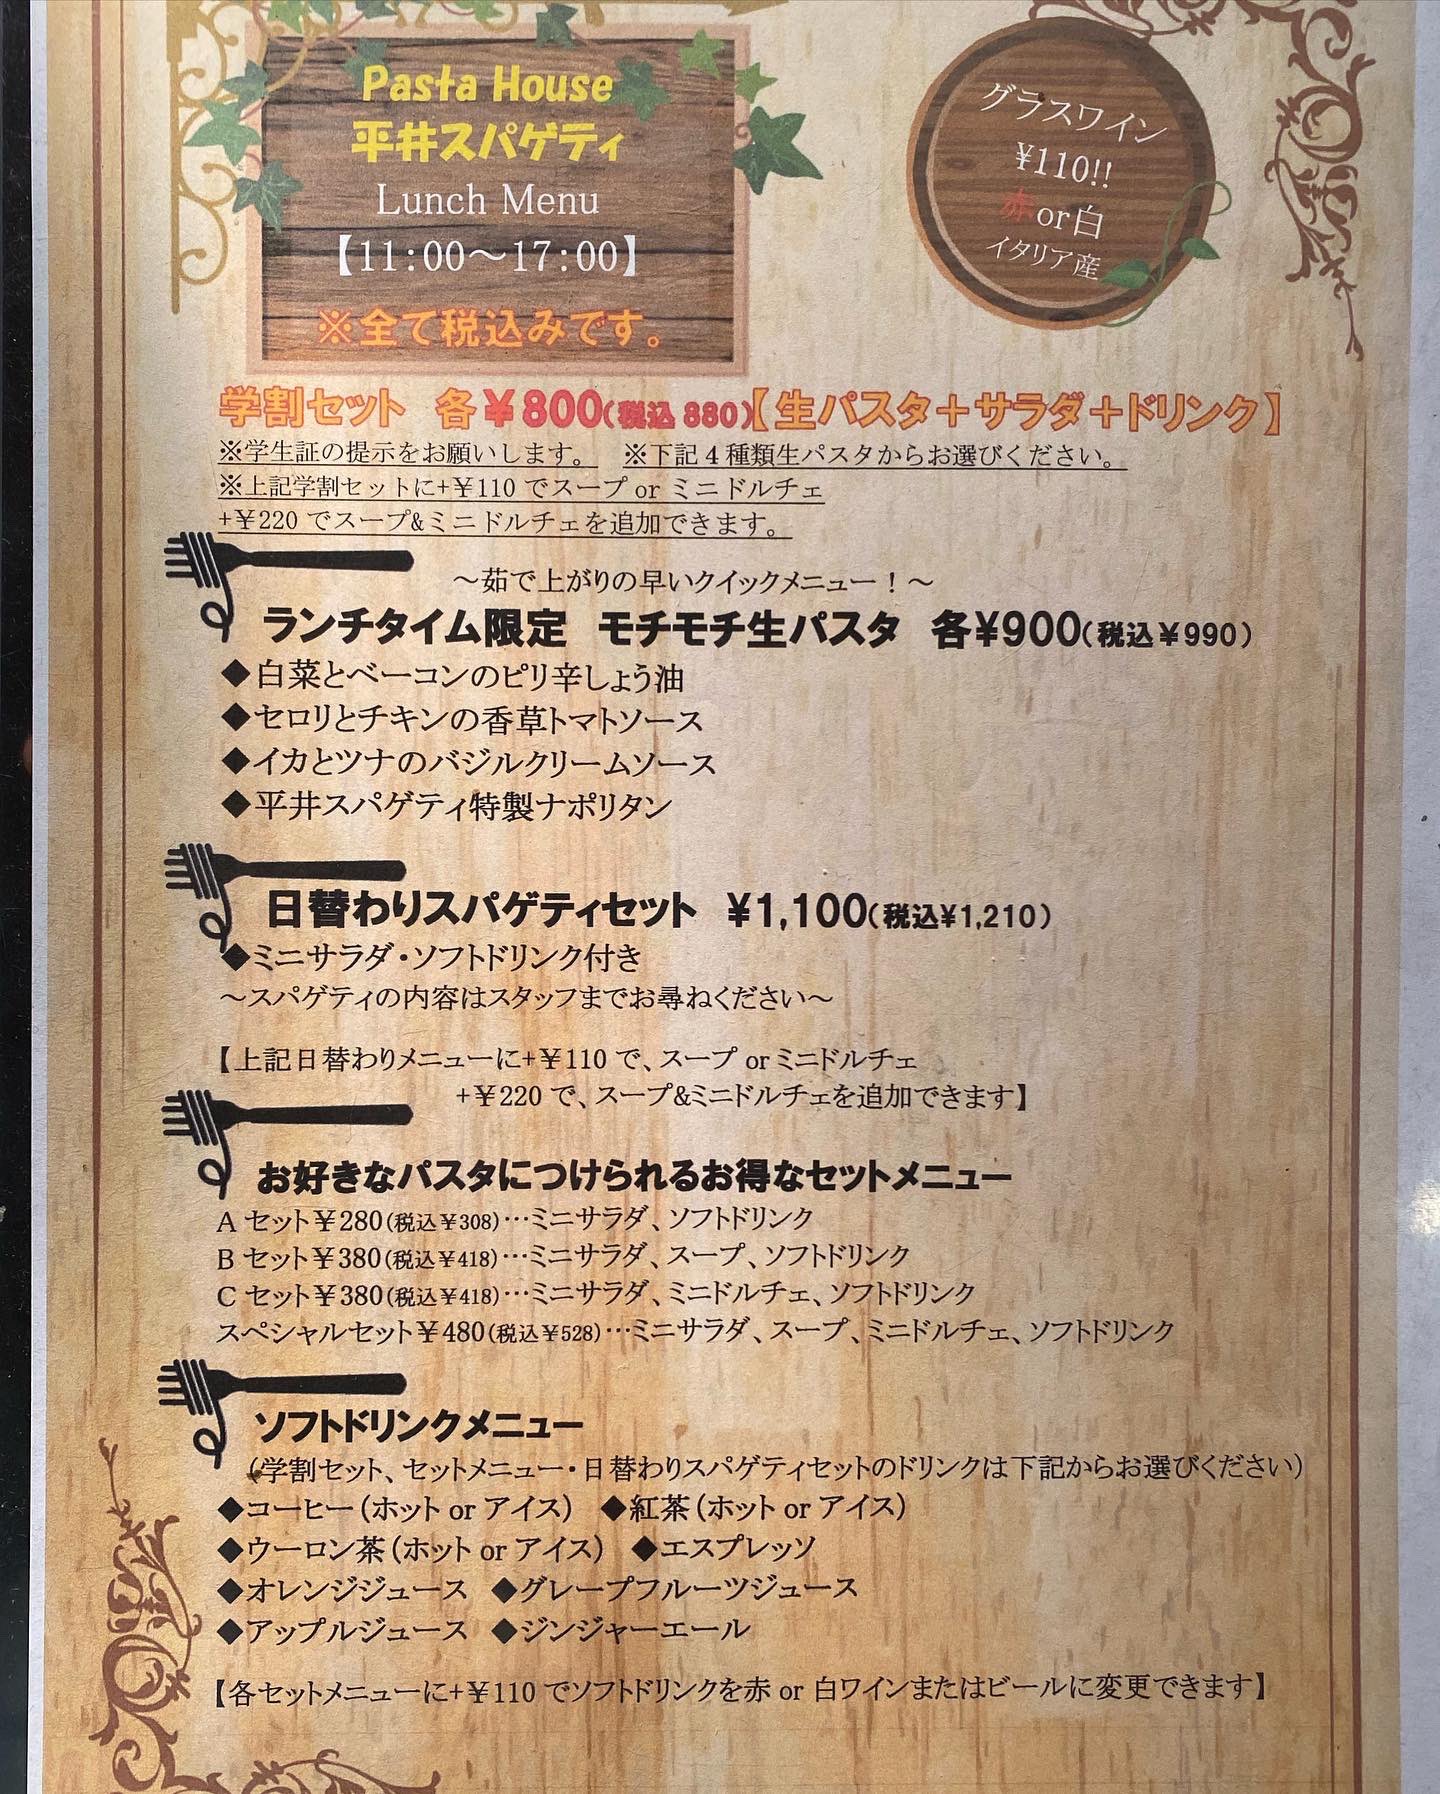 Pasta House
平井スパゲティ
Lunch Menu
【11:00～17:00】
※全て税込みです。
グラスワイン
¥110!!
赤or白
イタリア産
学割セット 各¥800(税込 880)【生パスタ＋サラダ＋ドリンク】
※学生証の提示をお願いします。 ※下記4種類生パスタからお選びください。
※上記学割セットに+¥110でスープ or ミニドルチェ
+¥220でスープ&ミニドルチェを追加できます。
～茹で上がりの早いクイックメニュー！～
ランチタイム限定 モチモチ生パスタ 各¥900(税込¥990)
◆白菜とベーコンのピリ辛しょう油
◆セロリとチキンの香草トマトソース
◆イカとツナのバジルクリームソース
◆平井スパゲティ特製ナポリタン
日替わりスパゲティセット ¥1,100(税込¥1,210)
◆ミニサラダ・ソフトドリンク付き
～スパゲティの内容はスタッフまでお尋ねください～
【上記日替わりメニューに+¥110で、スープ or ミニドルチェ
+¥220で、スープ&ミニドルチェを追加できます】
お好きなパスタにつけられるお得なセットメニュー
A セット¥280(税込¥308)…ミニサラダ、ソフトドリンク
B セット¥380(税込¥418)…ミニサラダ、スープ、ソフトドリンク
C セット¥380(税込¥418)…ミニサラダ、ミニドルチェ、ソフトドリンク
スペシャルセット¥480(税込¥528)…ミニサラダ、スープ、ミニドルチェ、ソフトドリンク
ソフトドリンクメニュー
(学割セット、セットメニュー・日替わりスパゲティセットのドリンクは下記からお選びください)
◆コーヒー(ホット or アイス) ◆紅茶(ホット or アイス)
◆ウーロン茶(ホット or アイス) ◆エスプレッソ
◆オレンジジュース ◆グレープフルーツジュース
◆アップルジュース ◆ジンジャーエール
【各セットメニューに+¥110でソフトドリンクを赤 or 白ワインまたはビールに変更できます】